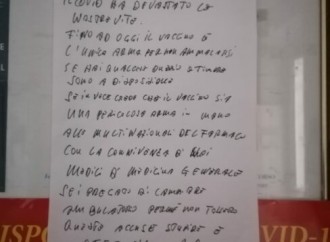 IL COVID HA DEVASTATO LA
NOSTRA VITA.
FINO AD OGGI IL VACCINO È
L'UNICA ARMA PER NON AMMALARSI
SE HAI QUALCHE DUBBIO O TIMORE
SONO A DISPOSIZIONE
SE INVECE CREDI CHE IL VACCINO SIA
UNA PERICOLOSA ARMA IN MANO
ALLE MULTINAZIONALI DEL FARMACO
CON LA CONNIVENZA DI NOI
MEDICI DI MEDICINA GENERALE
SEI PREGATO DI CAMBIARE
AMBULATORIO PERCHÉ NON TOLLERO
QUESTE ACCUSE STUPIDE E